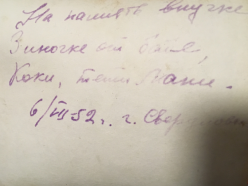 На память внучке
Зиночке от бабы,
Коки, тети Вали.
6/III 52. г. Свер